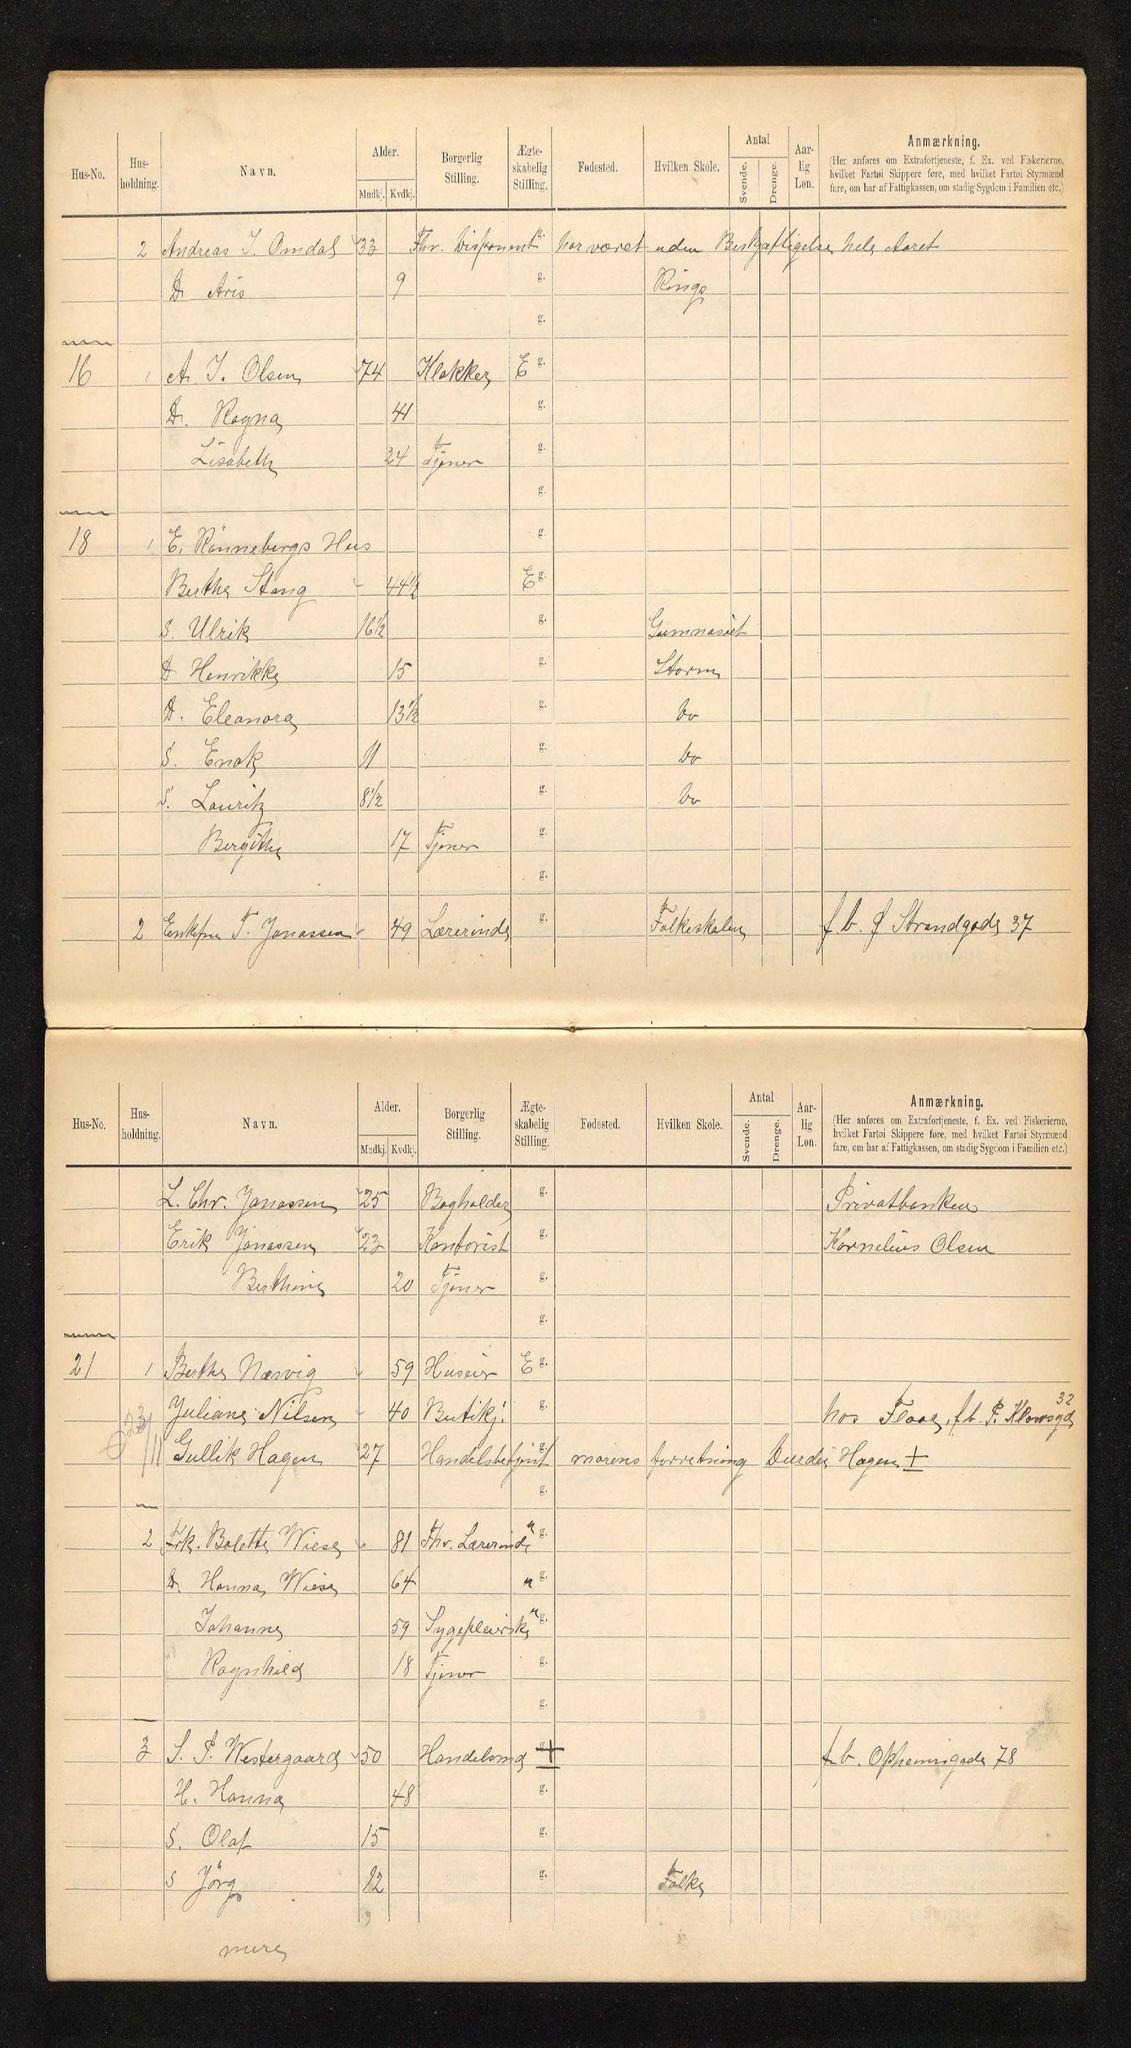 Hus-No. Hus-holdning. Navn. Alder. Mndkj. Kvdkj. Borgerlig Stilling. Ægte-skabelig Stilling. Fødested. Hvilken Skole. Antal Svende. Drenge. Aar-lig Løn. Anmærkning.
(Her anføres om Extrafortjeneste, f. Ex. ved Fiskerierne,
hvilket Fartøi Skippere føre, med hvilket Fartøi Styrmænd
fare, om har af Fattigkassen, om stadig Sygdom i Familien etc.)
2 Andreas J. Omdal 33 Fhv. Disponent g. har været uden Beskjæftigelse hele Aaret
D. 9 g. Kings
g.
16 1 A. J. Olsen 74 Klokker E g.
D. Ragna 41 g.
Lisabeth 24 Tjener g.
g.
18 1 E. Rönnebergs Hus g.
Berthe Stang 44½ E g.
S. Ulrik 16½ g. Gumnasiet
D. Henrikke 15 g. Storm
D. Eleonora 13½ g. Do
S. Enok 11 g. Do
S. Lauritz 8½ g. Do
Bergithe 17 Tjener g.
g.
2 Enkefru T. Jonassen 49 Lærerinde g. Folkeskolen f. b. Ø Strandgade 37
Hus-No. Hus-holdning. Navn. Alder. Mndkj. Kvdkj. Borgerlig Stilling. Ægte-skabelig Stilling. Fødested. Hvilken Skole. Antal Svende. Drenge. Aar-lig Løn. Anmærkning.
(Her anføres om Extrafortjeneste, f. Ex. ved Fiskerierne,
hvilket Fartøi Skippere føre, med hvilket Fartøi Styrmænd
fare, om har af Fattigkassen, om stadig Sygdom i Familien etc.)
L. Chr. Jonassen 25 Bogholder g. Privatbanken
Erik Jonassen 23 Kontorist g. Kornelius Olsen
Berthine 20 Tjener g.
g.
21 1 Berthe Næsvig 59 Huseier E g.
Juliane Nilsen 40 Butikj. g. hos Floor, f. b. P. Klowsgd 32
Gullik Hagen 27 Handelsbetjent g. morens forretning Hagen +
g.
2 Frk. Bolette Wiese 81 Fhv. Lærerinde " g.
D. Hanna Wiese 64 " g.
Johanne 59 Sygepleierske " g.
Ragnhild 18 Tjener g.
g.
3 S. P. Westergaard 50 Handelsmd + g. f. b. Opheimgade 78
H. Hanna 48 g.
S. Olaf 15 g.
S Jörg 12 g. Folke
mere